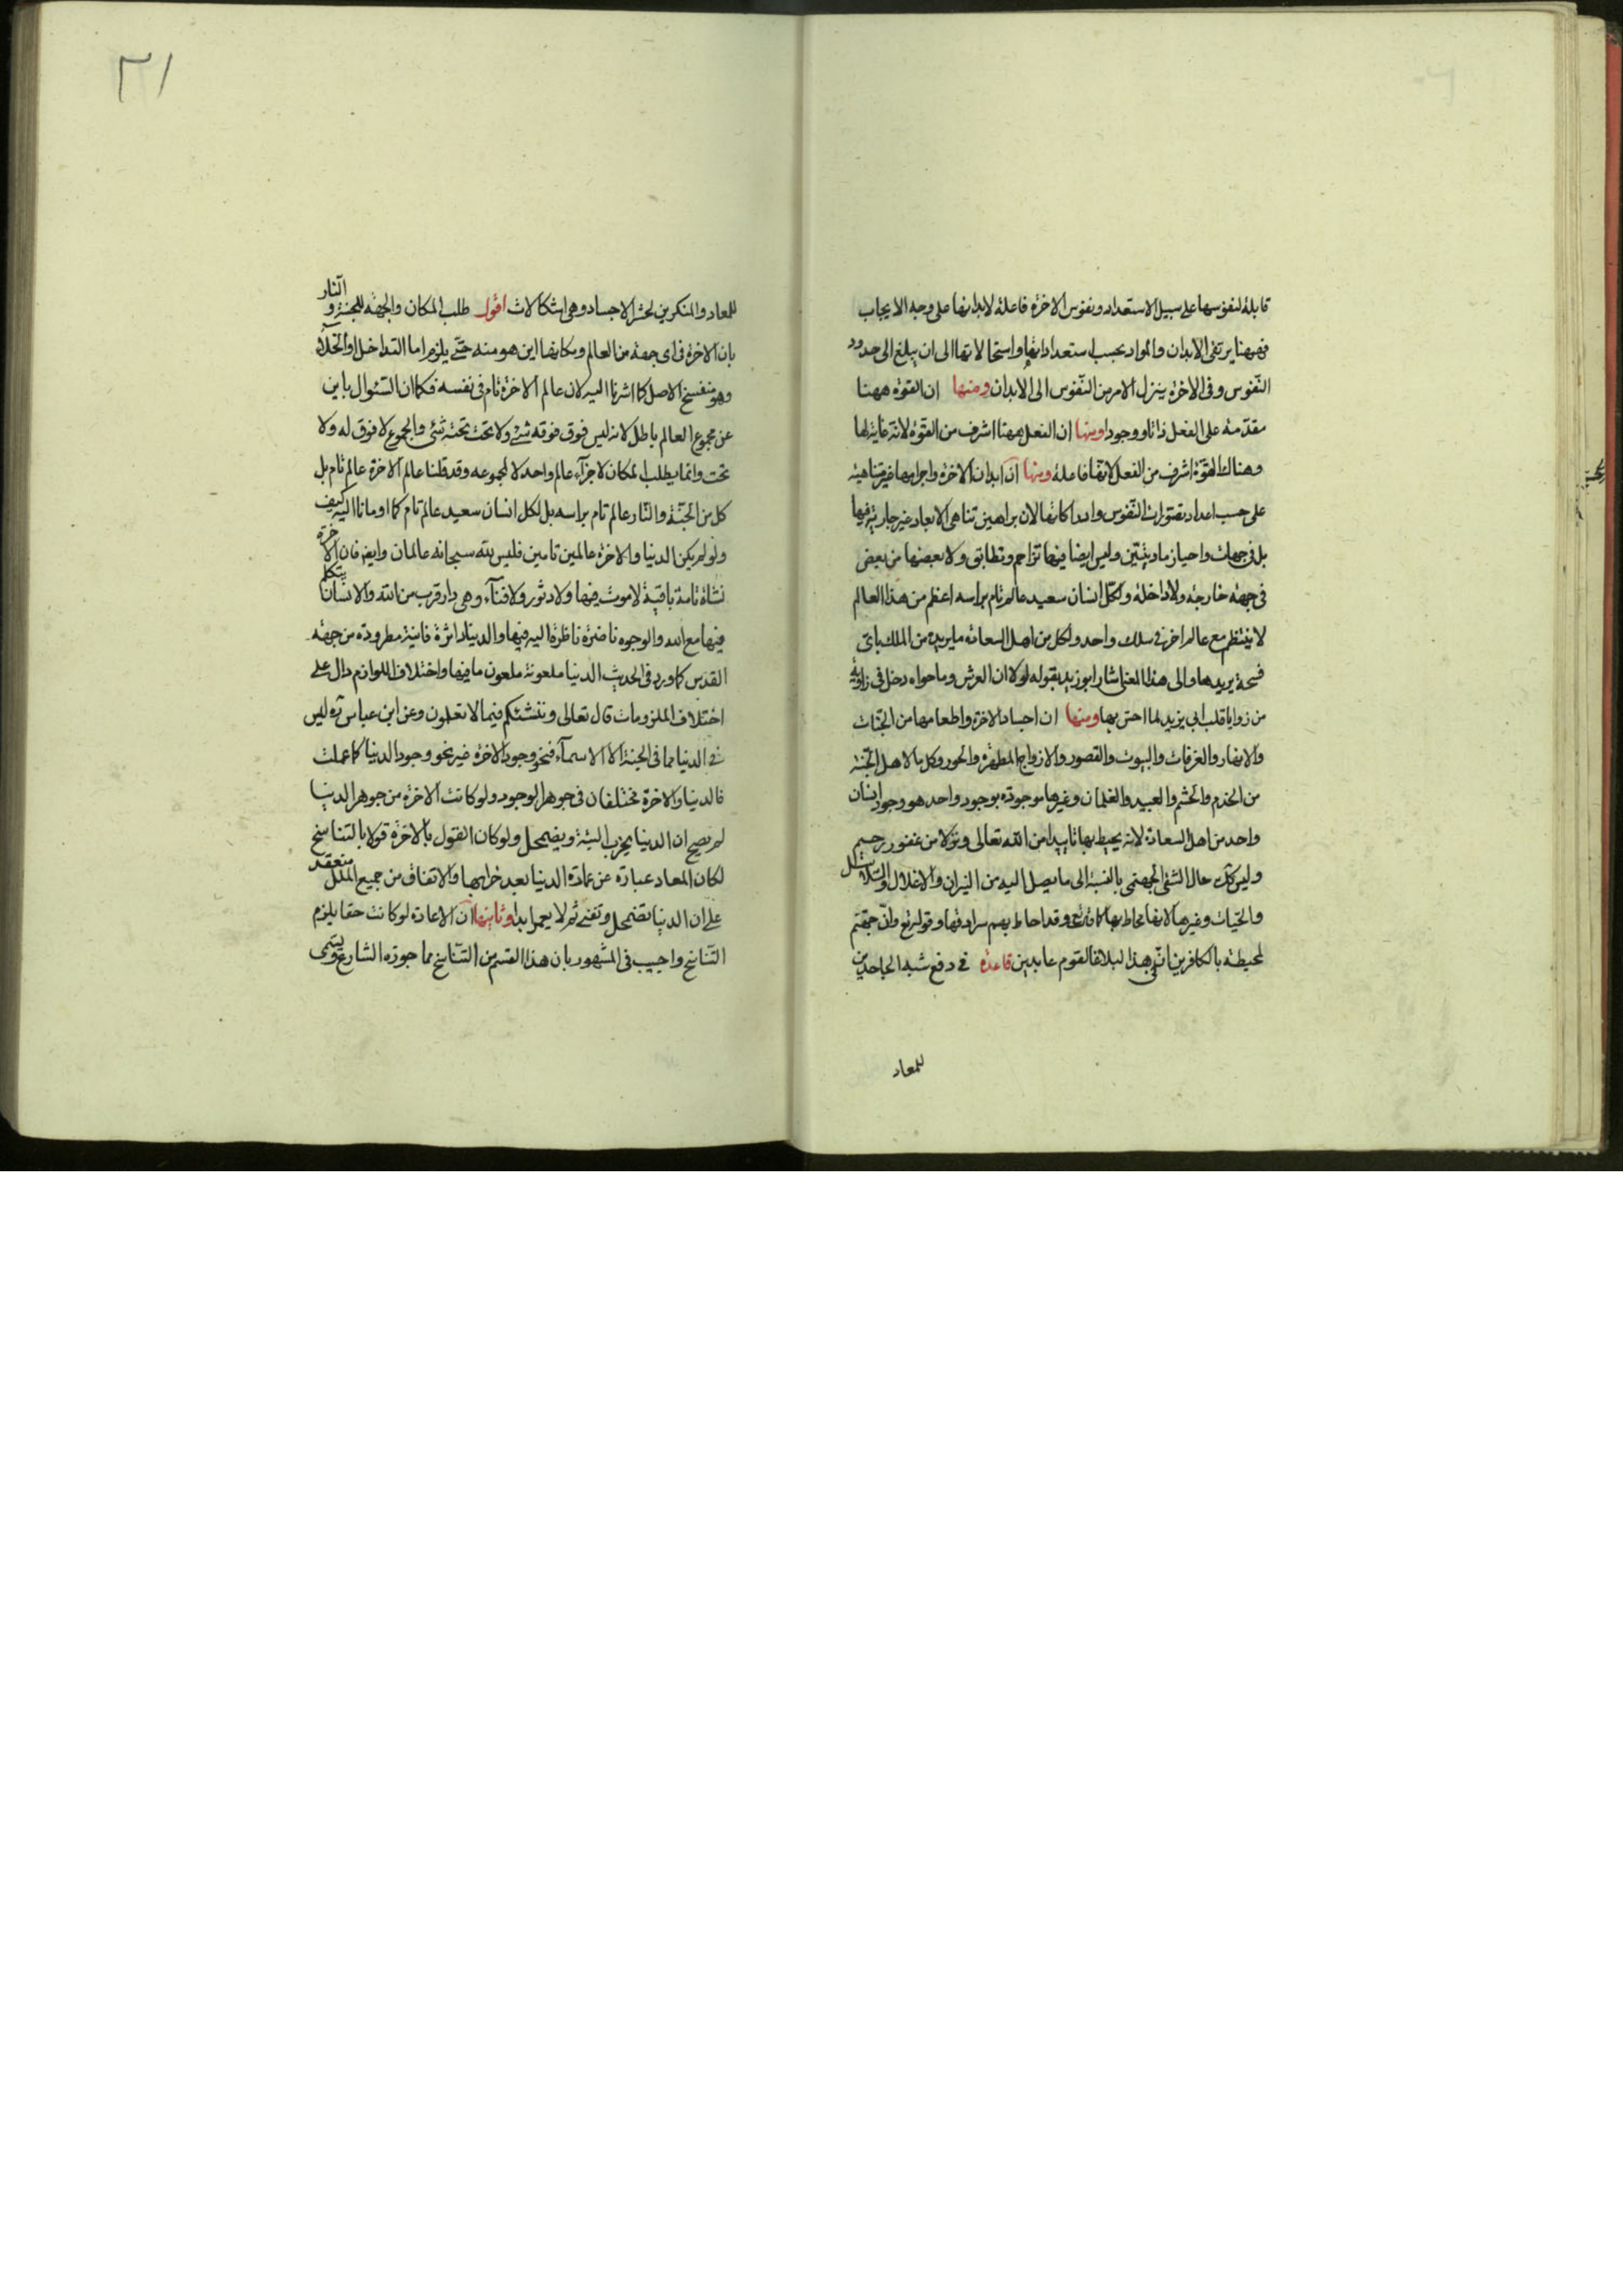 قابلة لنفوسها على سبيل الاستعداد ونفوس الاخرة فاعلة لابدانها على وجه الايجاب
فههنا يرتقى الابدان والمواد بحسب استعداداتها واستحالاتها الى ان يبلغ الى حدود
النّفوس وفى الاخرة يتنزل الامر من النّفوس الى الابدان ومنها ان القوة ههنا
مقدّمة على الفعل ذاتا ووجودا ومنها ان الفعل ههنا اشرف من القوّة لانّه غاية لها
وهناك القوّة اشرف من الفعل لانّها فاعلة ومنها انّ ابدان الاخرة واجرامها غير متناهية
على حسب اعداد تصّورات النّفوس وادراكاتها لان براهين تناهى الابعاد غير جارية فيها
بل فى جهات واحياز ماديّتين وليس ايضا فيها تزاحم وتطابق ولا بعضها من بعض
فى جهة خارجة ولا داخلة ولكلّ انسان سعيد عالم تام براسه اعظم من هذا العالم
لا ينتظم مع عالم اخر فى سلك واحد ولكل من اهل السعاته ما يريده من الملك باى
فسحة يريدها والى هذا المعنى اشار ابو زيد بقوله لولا ان العرش وما حواه دخل فى زاوية
من زوايا قلب ابى يزيد لما احسّ بها ومنها ان اجساد الاخرة واطعامها من الجنّات
والانهار والغرفات والبيوت والقصور والازواج المطهّرة والحور وكل ما لاهل الجنّة
من الخدم والحشم والعبيد والغلمان وغيرها موجودة بوجود واحد هو وجود انسان
واحد من اهل السعادة لانه يحيط بها تاييدا من الله تعالى ونزلا من غفور رحيم
وليس كك حال الشقى الجهنمى بالنسبة الى ما يصل اليه من النيران والاغلال والسّلاسل
والحيّات وغيرها لانها محاط بها كما قال تع وقد احاط بهم سرادقها وقوله تع وانّ جهنّم
لمحيطة بالكافرين انّ فى هذا لبلاغا لقوم عابدين قاعدة فى دفع شبه الجاحدين
للمعاد
٣١
للمعاد والمنكرين لحشر الاجساد وهى اشكالات اقول طلب المكان والجهة للجنّة و النّار
بان الاخرة فى اى جهة من العالم ومكانها اين هو منه حتّى يلزم اما التداخل او الخلاء
وهو منفسخ الاصل كما اشرنا اليه لان عالم الاخرة تام فى نفسه فكما ان السّئوال باين
عن مجموع العالم باطل لانه ليس فوق فوقه شئ ولا تحت تحته شئ والمجموع لا فوق له ولا
تحت وانما يطلب المكان لاجزاء عالم واحد لا لمجموعه وقد قلنا عالم الاخرة عالم تام بل
كل من الجنّة والنّار عالم تام براسه بل لكل انسان سعيد عالم تام كما اومانا اليه كيف
ولو لم يكن الدنيا والاخرة عالمين تامين فليس لله سبحانه عالمان وايض فان الاخرة
نشاة تامة باقية لا موت فيها ولا دثور ولا فنآء وهى دار قرب من الله والانسان يتكلم
فيها مع الله والوجوه ناضرة ناظرة اليه فيها والدنيا داثرة فانية مطرودة من جهة
القدس كما ورد فى الحديث الدنيا ملعونة ملعون ما فيها واختلاف اللوازم دال على
اختلاف الملزومات قال تعالى وننشئكم فيما لا تعلمون وعن ابن عباس ره ليس
فى الدنيا مما فى الجنة الا الاسمآء فنحو وجود الاخرة غير نحو وجود الدنيا كما علمت
فالدنيا والاخرة مختلفان فى جوهر الوجود ولو كانت الاخرة من جوهر الدنيا
لم يصح ان الدنيا يخرب البتة ويضمحل ولو كان القول بالاخرة قولا بالتناسخ
لكان المعاد عبارة عن عمارة الدنيا بعد خرابها والاتفاق من جميع الملل منعقد
على ان الدنيا تضمحل وتفنى ثم لا يعمر ابدا وثانيها انّ الاعادة لو كانت حقا يلزم
التّناسخ واجيب فى المشهور بان هذا القسم من التّناسخ مما جوزه الشارع ويسمى